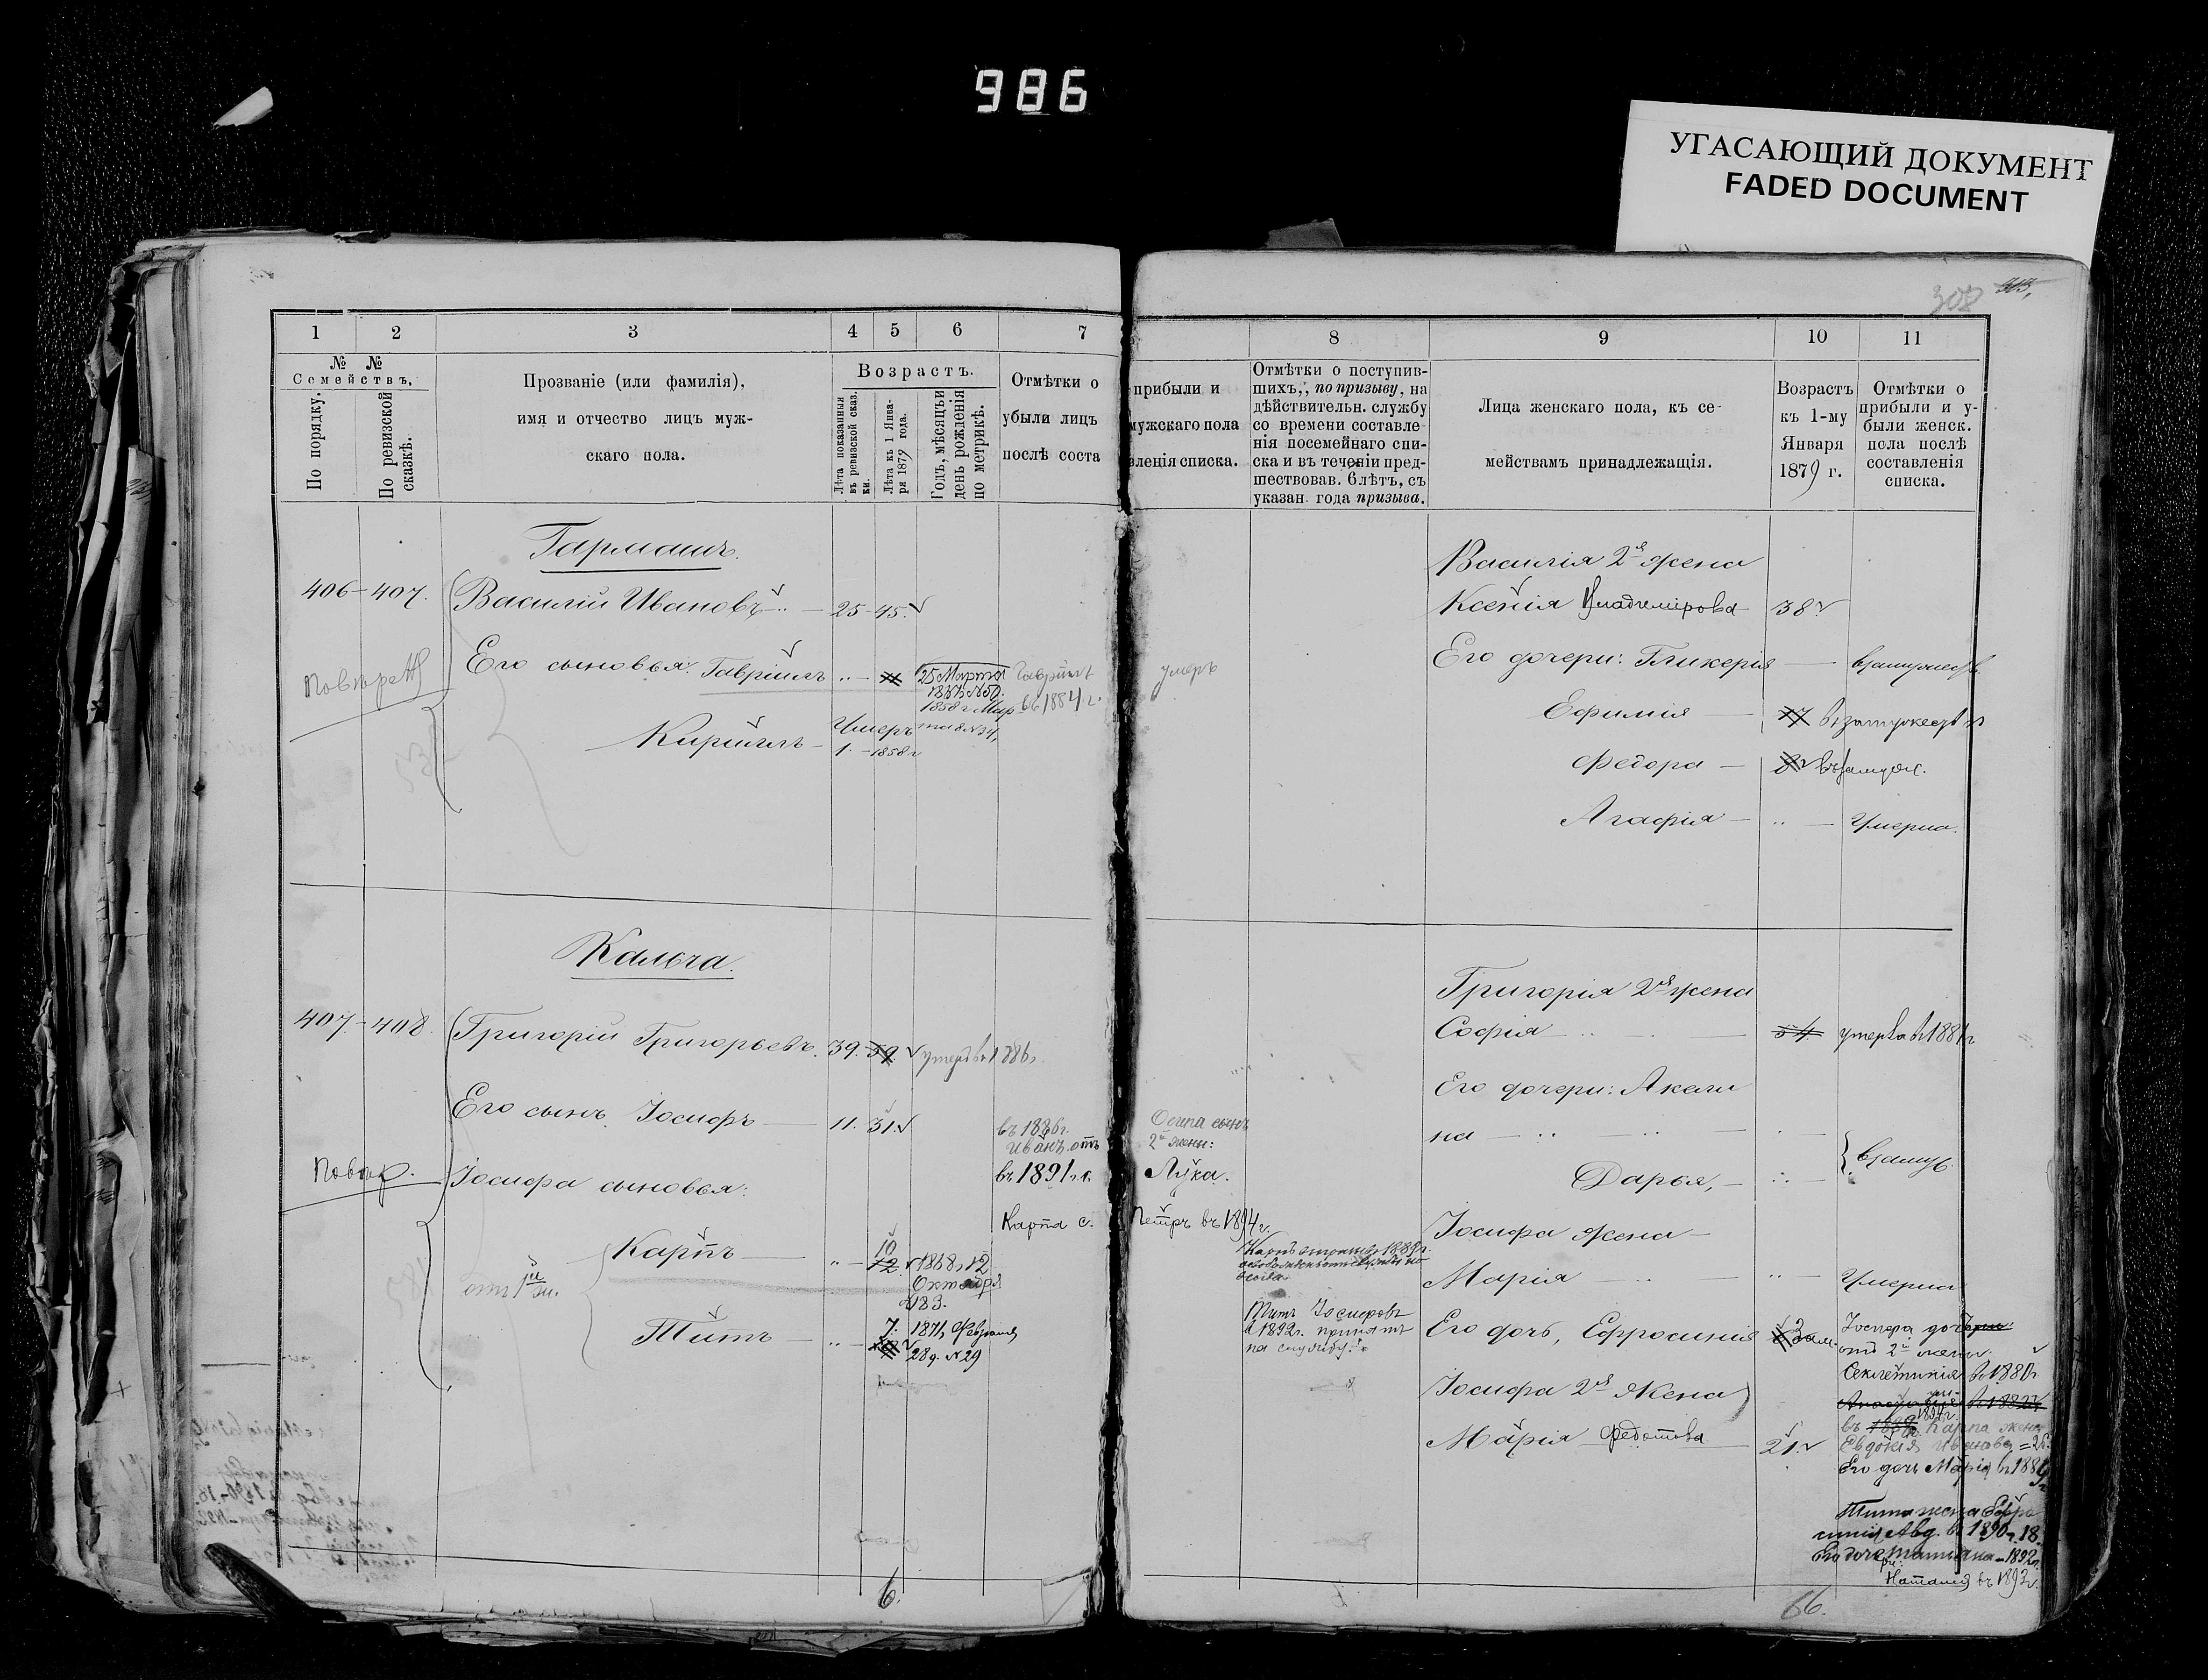 986
УГАСАЮЩИЙ ДОКУМЕНТ
FADED DOCUMENT
308
1
2
3
4
5
6
7
8
9
10
11
№ №
Семействъ.
По порядку.
По ревизской сказкѣ.
Прозваніе (или фамилія),
имя и отчество лицъ муж-
скаго пола.
Возрастъ.
Лѣта показанныя
въ ревизской сказ.
ки.
Лѣта къ 1 Янва-
ря 1879 года.
Годъ, мѣсяцъ и
день рожденія
по метрикѣ.
Отмѣтки о
прибыли и
убыли лицъ
мужскаго пола
послѣ соста
вленія списка.
Отмѣтки о поступив-
шихъ, по призыву, на
дѣйствительн. службу
со времени составле
нія посемейнаго спи-
ска и въ теченіи пред-
шествовав. 6 лѣтъ, съ
указан. года призыва.
Лица женскаго пола, къ се-
мействамъ принадлежащія.
Возрастъ
къ 1-му
Января
1879 г.
Отмѣтки о
прибыли и у-
были женск.
пола послѣ
составленія
списка.
Гармашъ.
406-407.
Василій Ивановъ
25-45.
Его сыновья: Гавріилъ
25 Марта
1858 г. Мар
Гавріилъ
въ 1884 г.
умеръ
Кириллъ
Умеръ
1.-1858 г.
Василія 2я жена
Ксенія Владимірова 38
Его дочери: Гликерія
взамужеств.
Ефимія 17 взамужествѣ
Федора 8 взамуж.
Агафія
Умерла.
Кальча.
407-408.
Григорій Григорьевъ. 39. 59 умеръ въ 1886 г.
Его сынъ Іосифъ 11. 31.
въ 1886 г.
Иванъ отъ
Осипа сынъ
2й жены:
въ 1891 г. с.
Лука.
Повѣр.
Іосифа сыновья:
Карпа с. Петръ въ 1894 г.
отъ 1й ж.
Карпъ
10
12
1868, 12
Октября
№ 183.
Титъ
7. 1871, Февраля
28 д. № 29
Титъ Іосифовъ
въ 1892 г. принятъ
на службу.
Григорія 2я жена
Софія 54 умерла въ 1881 г.
Его дочери: Акели
на
Дарья,
взамуж.
Іосифа жена
Марія
Умерла
Его дочь, Ефросинія
зам.
Іосифа дочь
отъ 2й жены.
въ 1880 г.
Іосифа 2я жена
Марія Федотова 21.
1894 г.
Карпа жена
Евдокія Иванова
Его дочь Марія въ 1889
Тита жена Ефро
синія Авд. въ 1890 г. 18.
1892 г.
Наталія въ 1893 г.
6.
66.